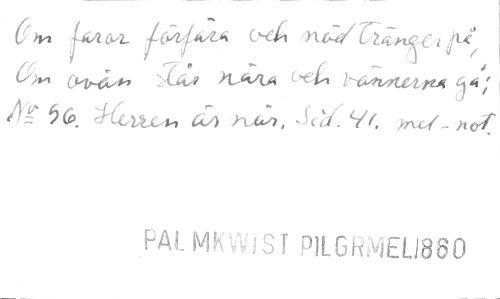 Om faror förfära och nöd tränger på,
Om ovän står nära och vännerna gå;
No 56. Herren är när. Sid. 41. mel-not.
PALMKWIST PILGRMEL1860